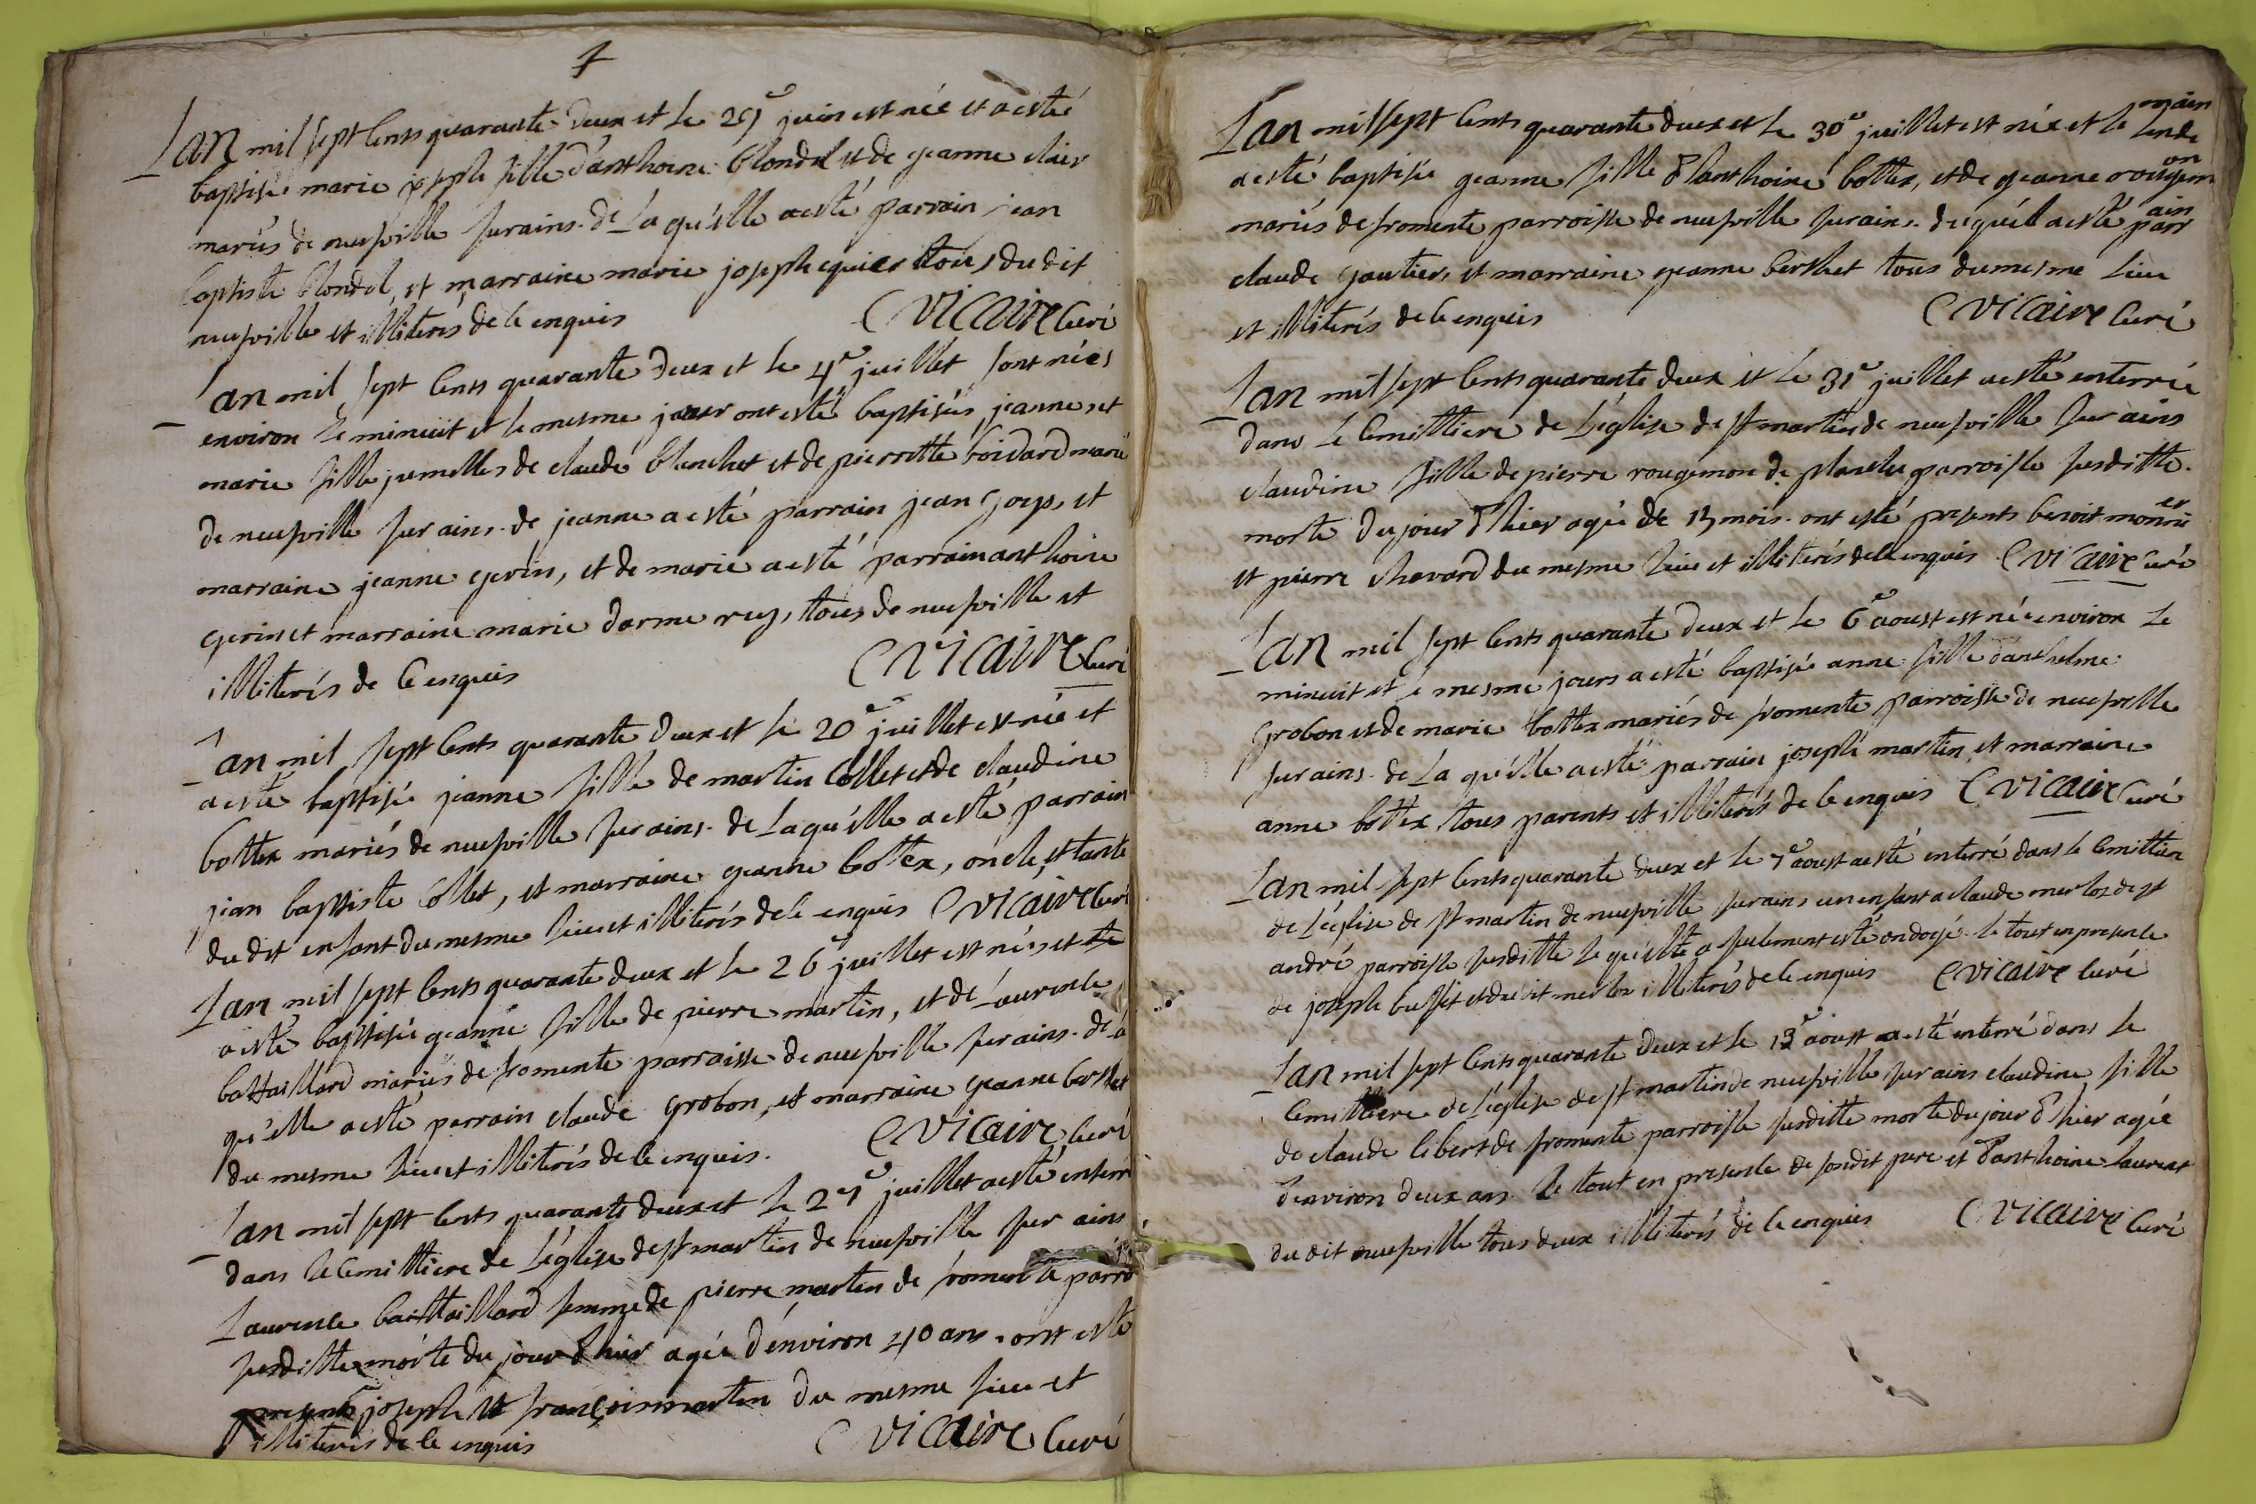 7
Lan mil sept cents quarante deux et le 29e juin est née et a esté
baptisée marie joseph fille d'anthoine blondel et de jeanne clair
mariés de neufville sur ains. de la qu'elle a esté parrain jean
baptiste blondel, et marraine marie joseph equier tous du dit
neufville et illiterés de ce enquis
C Vicaire Curé
Lan mil sept cents quarante deux et le 4e juillet sont nées
environ le minuit et le mesme jour ont esté baptisées jeanne, et
marie fille jumelles de claude blanchet et de pierrette boidard mariés
de neufville sur ains. de jeanne a esté parrain jean et
marraine jeanne gerin, et de marie a esté parrain anthoine
gerin et marraine marie tous de neufville et
illiterés de ce enquis
C Vicaire Curé
Lan mil sept cents quarante deux et le 20e juillet est née et
a esté baptisée jeanne fille de martin Collet et de claudine
bottex mariés de neufville sur ains. de la qu'elle a esté parrain
jean baptiste Collet, et marraine jeanne bottex, oncle, et tante
du dit enfant du mesme lieu et illiterés de ce enquis C Vicaire Curé
Lan mil sept cents quarante deux et le 26e juillet est née, et
a esté baptisée jeanne fille de pierre martin, et de Laurence
battaillard mariés de fromente parroisse de neufville sur ains. de la
qu'elle a esté parrain claude grobon, et marraine jeanne berthet
du mesme lieu et illiterés de ce enquis.
C Vicaire Curé
Lan mil sept cents quarante deux et le 27e juillet a esté enterré
dans le Cemittiere de L'église de st martin de neufville sur ains
Laurence baittaillard femme de pierre martin de fromente parro
susditte morte du jour d'hier agée d'environ 40 ans. ont esté
presents joseph et françois martin du mesme lieu et
illiterés de ce enquis
C Vicaire Curé
Lan mil sept cents quarante deux et le 30e juillet est née et le lendemain
a esté baptisée jeanne fille d'anthoine bottex, et de jeanne rougemon
mariés de fromente parroisse de neufville sur ains. du quél a esté parrain
claude gautier, et marraine jeanne berthet tous du mesme lieu
et illiterés de ce enquis
C Vicaire Curé
Lan mil sept cents quarante deux et le 31e juillet a esté enterrée
dans le Cemittiere de L'église de st martin de neufville sur ains
claudine fille de pierre rougemon de planche parroisse susditte.
morte du jour d'hier agée de 13 mois. ont esté presents benoit monnier
et pierre chavard du mesme lieu et illiterés de ce enquis C Vicaire Curé
Lan mil sept cents quarante deux et le 6e aoust est née environ le
minuit et le mesme jour a esté baptisée anne fille d'anthelme
grobon et de marie bottex mariés de fromente parroisse de neufville
sur ains. de la qu'elle a esté parrain joseph martin, et marraine
anne bottex, tous parents et illiterés de ce enquis C Vicaire Curé
Lan mil sept cents quarante deux et le 7e aoust a esté enterré dans le Cemittiere
de L'église de st martin de neufville sur ains un enfant a claude merloz de st
andré parroisse susditte le qu'elle a seulement esté ondoyé. le tout en presence
de joseph buffet et du dit merloz illiterés de ce enquis C Vicaire Curé
Lan mil sept cents quarante deux et le 13e aoust a esté enterré dans le
Cemittiere de L'église de st martin de neufville sur ains claudine fille
de claude libert de fromente parroisse susditte morte du jour d'hier agée
d'environ deux ans. le tout en presence de sondit pere et d'anthoine laurent
du dit neufville tous deux illiterés de ce enquis
C Vicaire Curé